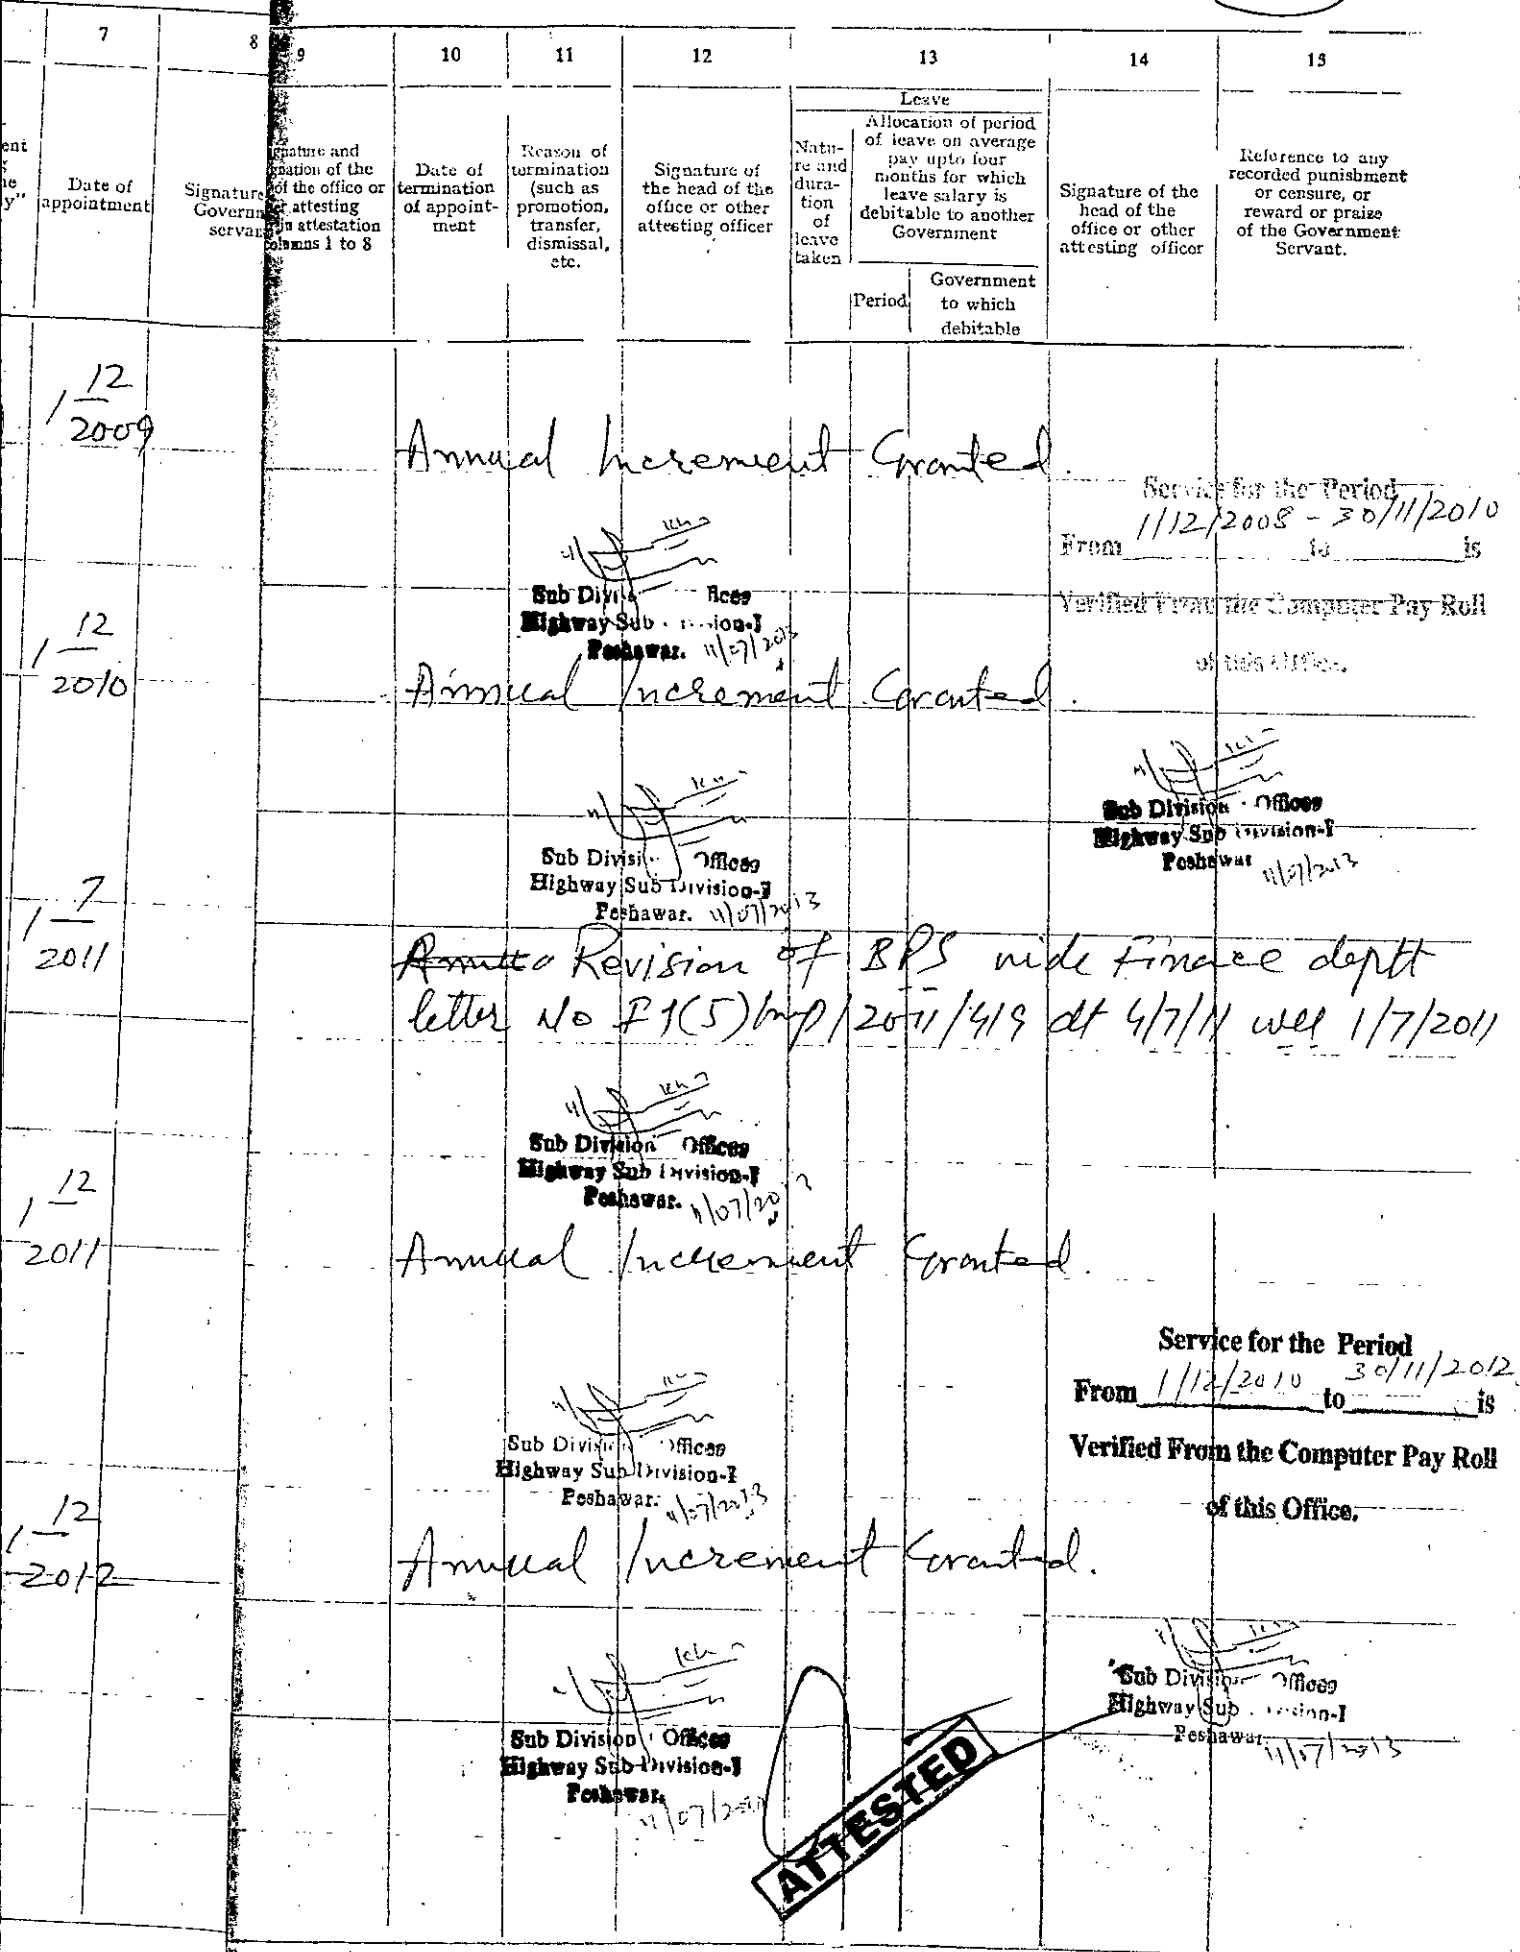 7 8 9 10 11 12 13 14 15
Leave
Date of
appointment
Signature
Governm
servan
gnature and
gnation of the
of the office or
er attesting
in attestation
olumns 1 to 8
Date of
termination
of appoint-
ment
Reason of
termination
(such as
promotion,
transfer,
dismissal,
etc.
Signature of
the head of the
office or other
attesting officer
Natu-
re and
dura-
tion
of
leave
taken
Allocation of period
of leave on average
pay upto four
months for which
leave salary is
debitable to another
Government
Period
Government
to which
debitable
Signature of the
head of the
office or other
attesting officer
Reference to any
recorded punishment
or censure, or
reward or praise
of the Government
Servant.
1 12
2009
Annual Increment Granted.
Service for the Period
From 1/12/2008 - 30/11/2010 to is
Verified From the Computer Pay Roll
of this Office.
Sub Divi ficer
Highway Sub ion-I
Peshawar. 11/07/2013
1 12
2010
Annual Increment Granted.
Sub Division Officer
Highway Sub Division-I
Peshawar 11/07/2013
Sub Divisi Officer
Highway Sub Division-I
Peshawar. 11/07/2013
1 7
2011
Revision of BPS vide Finance deptt
letter No F1(5)Imp/2011/419 dt 4/7/11 wef 1/7/2011
Sub Division Officer
Highway Sub Division-I
Peshawar. 11/07/2013
1 12
2011
Annual Increment Granted.
Service for the Period
From 1/12/2010 to 30/11/2012 is
Verified From the Computer Pay Roll
of this Office.
Sub Division Officer
Highway Sub Division-I
Peshawar. 11/07/2013
1 12
2012
Annual Increment Granted.
Sub Division Officer
Highway Sub ision-I
Peshawar 11/07/2013
Sub Division Officer
Highway Sub Division-I
Peshawar. 11/07/2013
ATTESTED